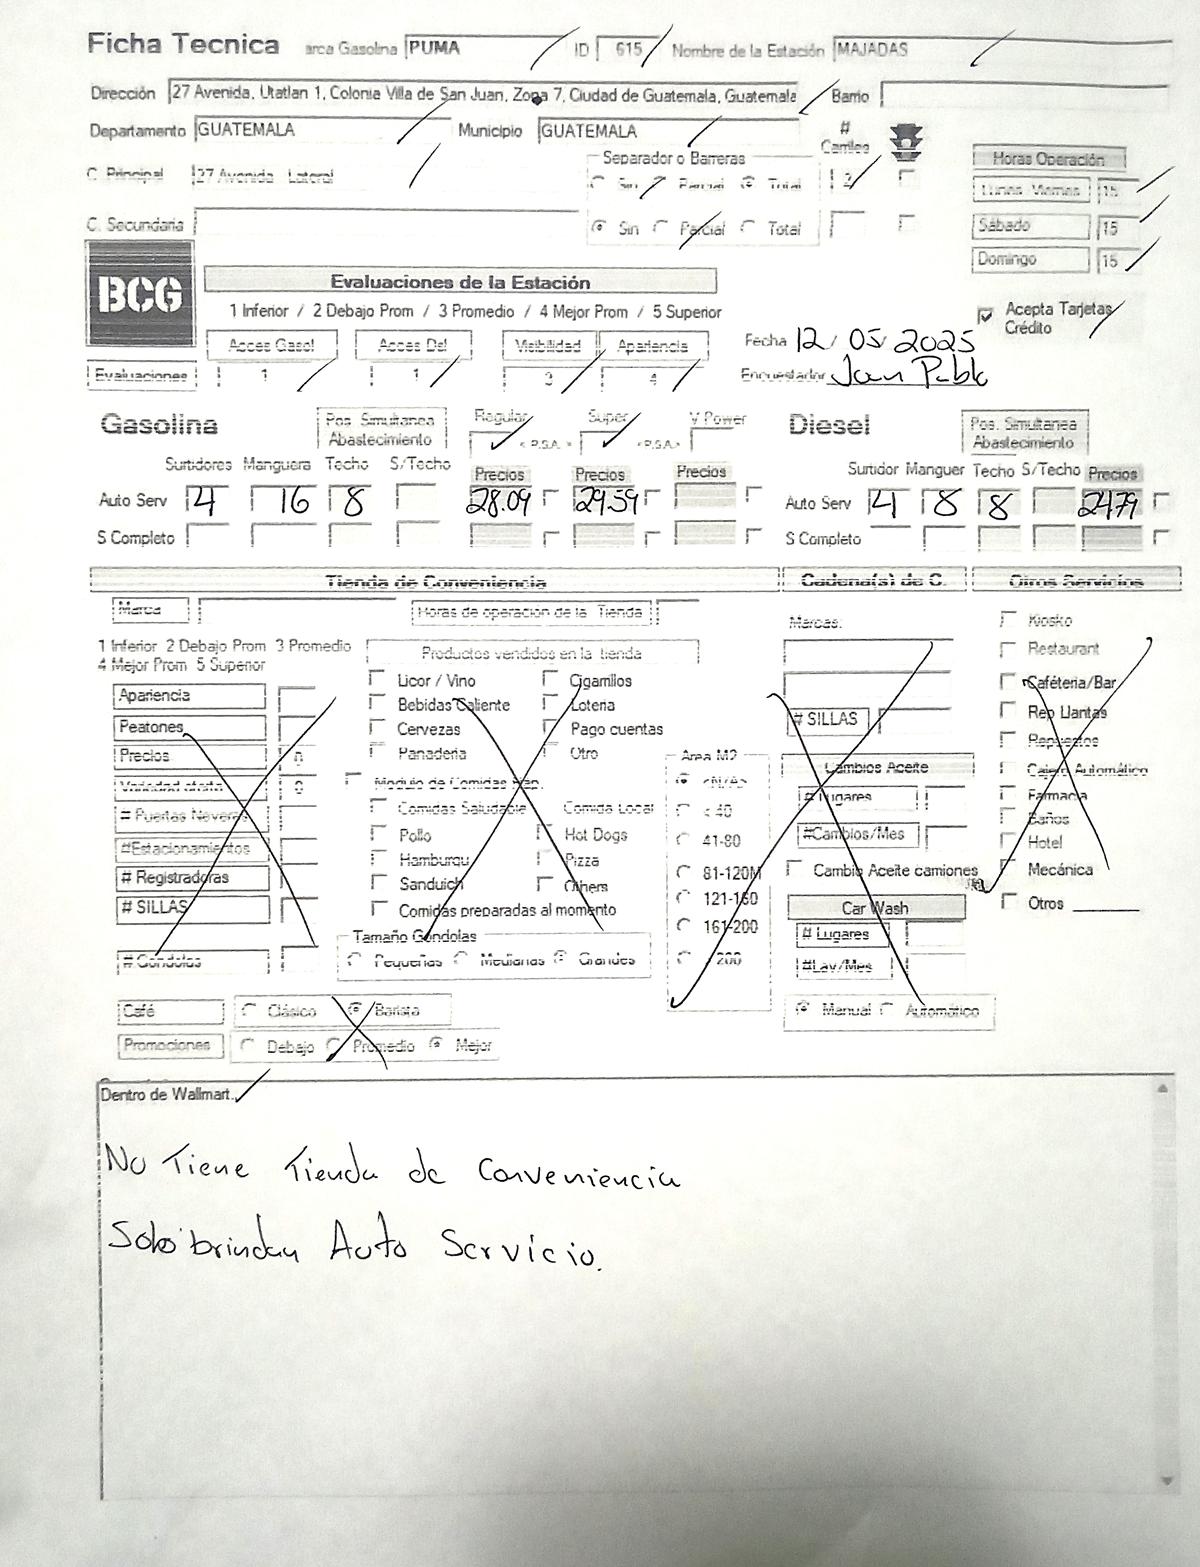 Ficha Tecnica arca Gasolina PUMA ID 615 Nombre de la Estación MAJADAS
Dirección 27 Avenida, Utatlan 1, Colonia Villa de San Juan, Zona 7, Ciudad de Guatemala, Guatemala Barrio
Departamento GUATEMALA Municipio GUATEMALA # Carriles
Separador o Barreras
Horas Operación
C. Principal 27 Avenida Lateral Sin Parcial Total 2 Lunes Viernes 15
C. Secundaria Sin Parcial Total Sábado 15
Domingo 15
BCG
Evaluaciones de la Estación
1 Inferior / 2 Debajo Prom / 3 Promedio / 4 Mejor Prom / 5 Superior
Acepta Tarjetas Crédito
Acces Gasol Acces Dsl Visibilidad Apariencia
Fecha 12/05/2025
Evaluaciones 1 1 3 4
Encuestador Juan Pablo
Gasolina Pos. Simultanea Abastecimiento Regular Super V Power Diesel Pos. Simultanea Abastecimiento
< P.S.A. > <P.S.A.>
Surtidores Manguera Techo S/Techo Precios Precios Precios Surtidor Manguer Techo S/Techo Precios
Auto Serv 4 16 8 28.09 29.59 Auto Serv 4 8 8 24.79
S Completo S Completo
Tienda de Conveniencia Cadena(s) de C. Otros Servicios
Marca Horas de operación de la Tienda Marcas: Kiosko
1 Inferior 2 Debajo Prom 3 Promedio
4 Mejor Prom 5 Superior
Productos vendidos en la tienda
Restaurant
Apariencia Licor / Vino Cigarrillos Caféteria/Bar
Peatones Bebidas Caliente Loteria # SILLAS Rep Llantas
Cervezas Pago cuentas Repuestos
Precios 0 Panaderia Otro Area M2 Cambios Aceite Cajero Automático
Variedad oferta 0 Modulo de Comidas Rap. <N/A> # Lugares Farmacia
# Puertas Neveras Comidas Saludable Comida Local < 40 Baños
#Estacionamientos Pollo Hot Dogs 41-80 #Cambios/Mes Hotel
# Registradoras Hamburqu Pizza 81-120M Cambio Aceite camiones Mecánica
# SILLAS Sanduich Others 121-160 Car Wash Otros
Comidas preparadas al momento 161-200 # Lugares
# Gondolas Tamaño Gondolas
Pequeñas Medianas Grandes > 200 #Lav/Mes
Café Clásico Barista Manual Automático
Promociones Debajo Promedio Mejor
Dentro de Wallmart.
No Tiene Tienda de Conveniencia
Solo brindan Auto Servicio.